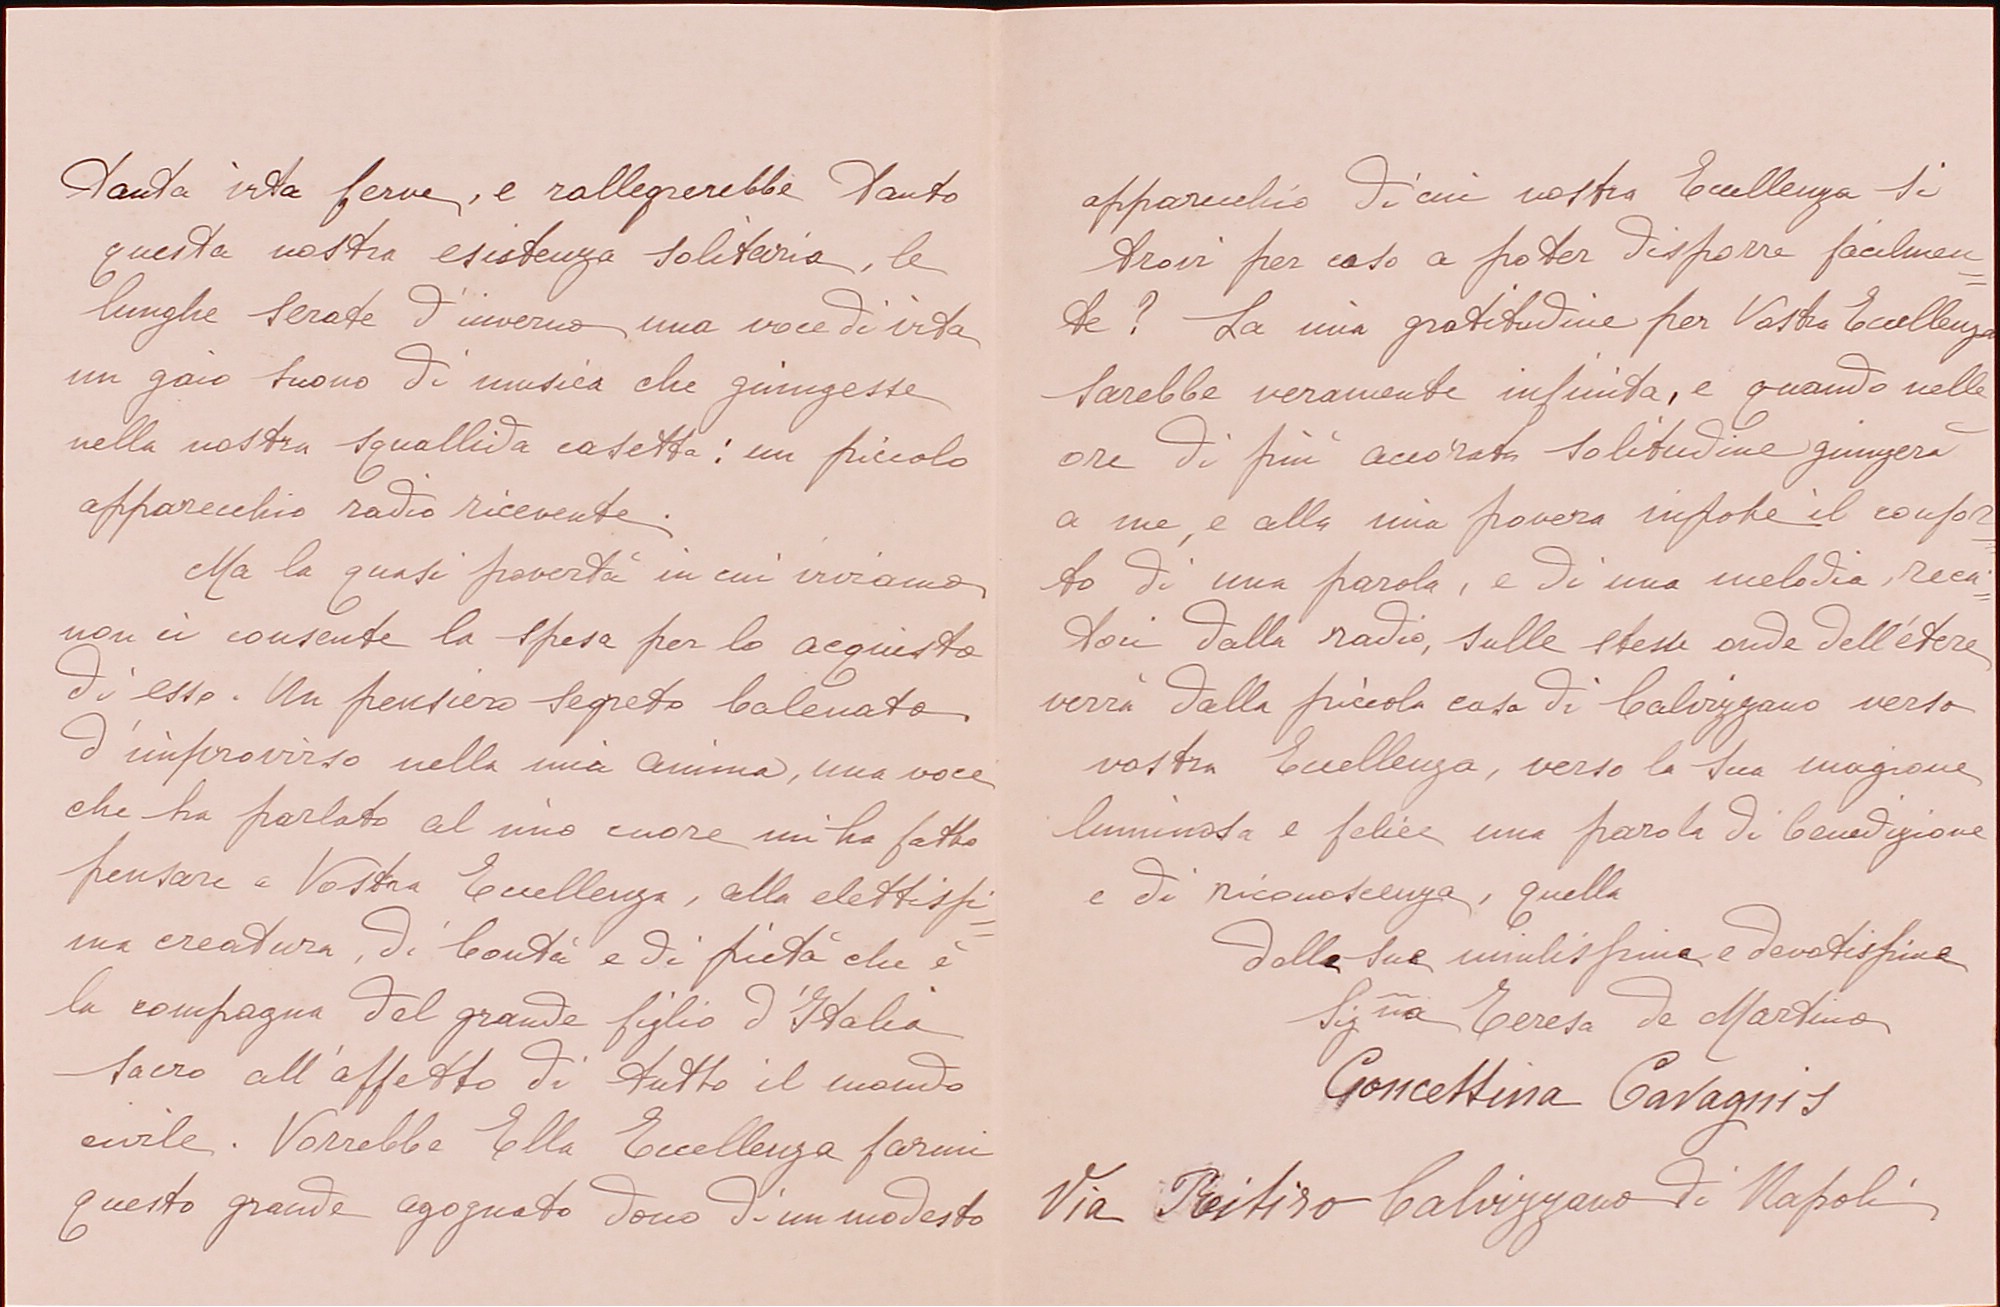 tanta vita ferve, e rallegrerebbe tanto
questa nostra esistenza solitaria, le
lunghe serate d'inverno una voce di vita
un gaio suono di musica che giungesse
nella nostra squallida casetta: un piccolo
apparecchio radio ricevente.
Ma la quasi povertà in cui viviamo
non ci consente la spesa per lo acquisto
di esso. Un pensiero segreto balenato
d'improvviso nella mia anima, una voce
che ha parlato al mio cuore mi ha fatto
pensare a Vostra Eccellenza, alla elettissi=
ma creatura, di bontà e di pietà che è
la compagna del grande figlio d'Italia
sacro all'affetto di tutto il mondo
civile. Vorrebbe Ella Eccellenza farmi
questo grande agognato dono di un modesto
apparecchio di cui vostra Eccellenza si
trovi per caso a poter disporre facilmen=
te? La mia gratitudine per Vostra Eccellenza
sarebbe veramente infinita, e quando nelle
ore di più accorata solitudine giungerà
a me, e alla mia povera nipote il confor=
to di una parola, e di una melodia, reca=
toci dalla radio, sulle stesse onde dell'etere
verrà dalla piccola casa di Calvizzano verso
vostra Eccellenza, verso la sua magione
luminosa e felice una parola di benedizione
e di riconoscenza, quella
della sua umilissima e devotissima
Sig.na Teresa de Martino
Concettina Cavagnis
Via Ritiro Calvizzano di Napoli